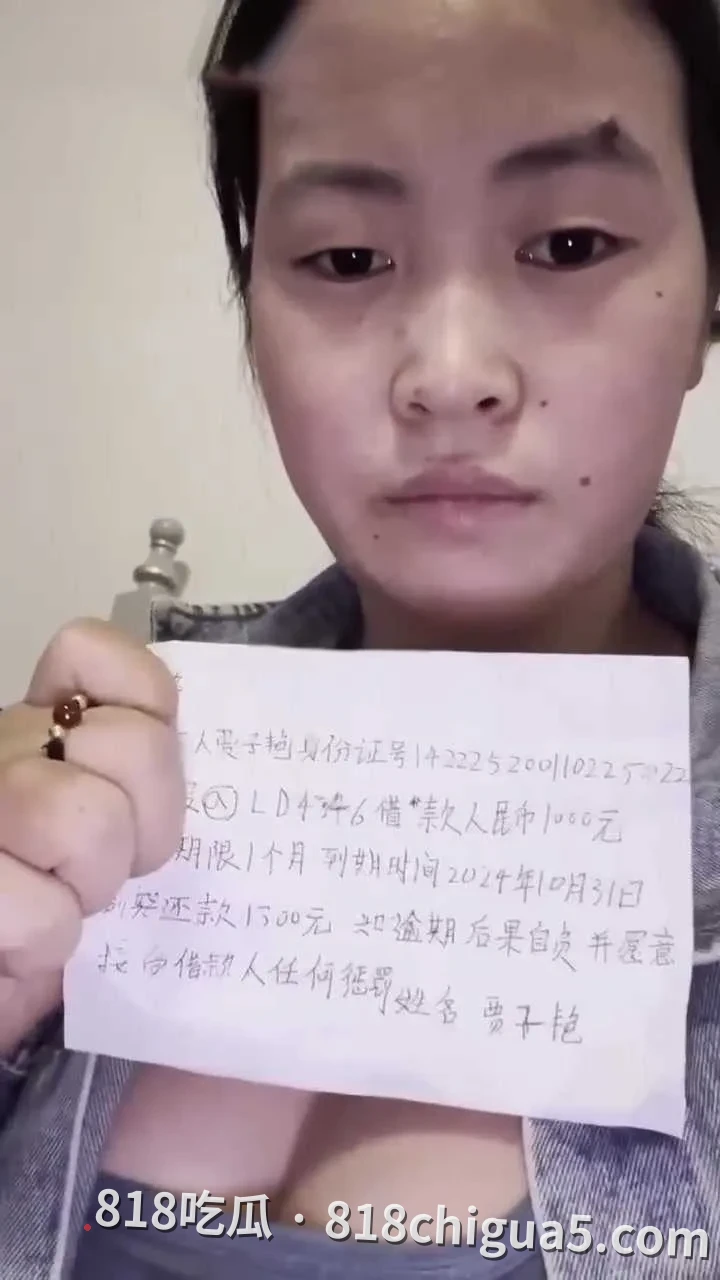 人[omitted]身份证号[omitted]
LD4346借款人民币1000元
期限1个月 到期时间2024年10月31日
还款1500元 如逾期后果自负 并愿意
借款人任何惩罚 姓名 [omitted]
818吃瓜 · 818chigua5.com